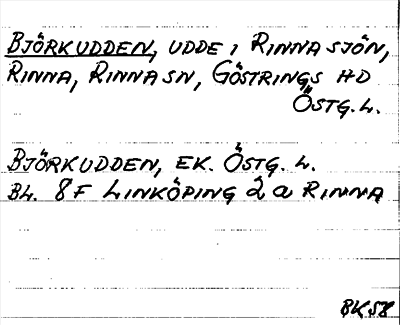 BJÖRKUDDEN, UDDE I RINNASJÖN,
RINNA, RINNA SN, GÖSTRINGS HD
ÖSTG. L.
BJÖRKUDDEN, EK. ÖSTG. L.
BL. 8F LINKÖPING 2a RINNA
BK58